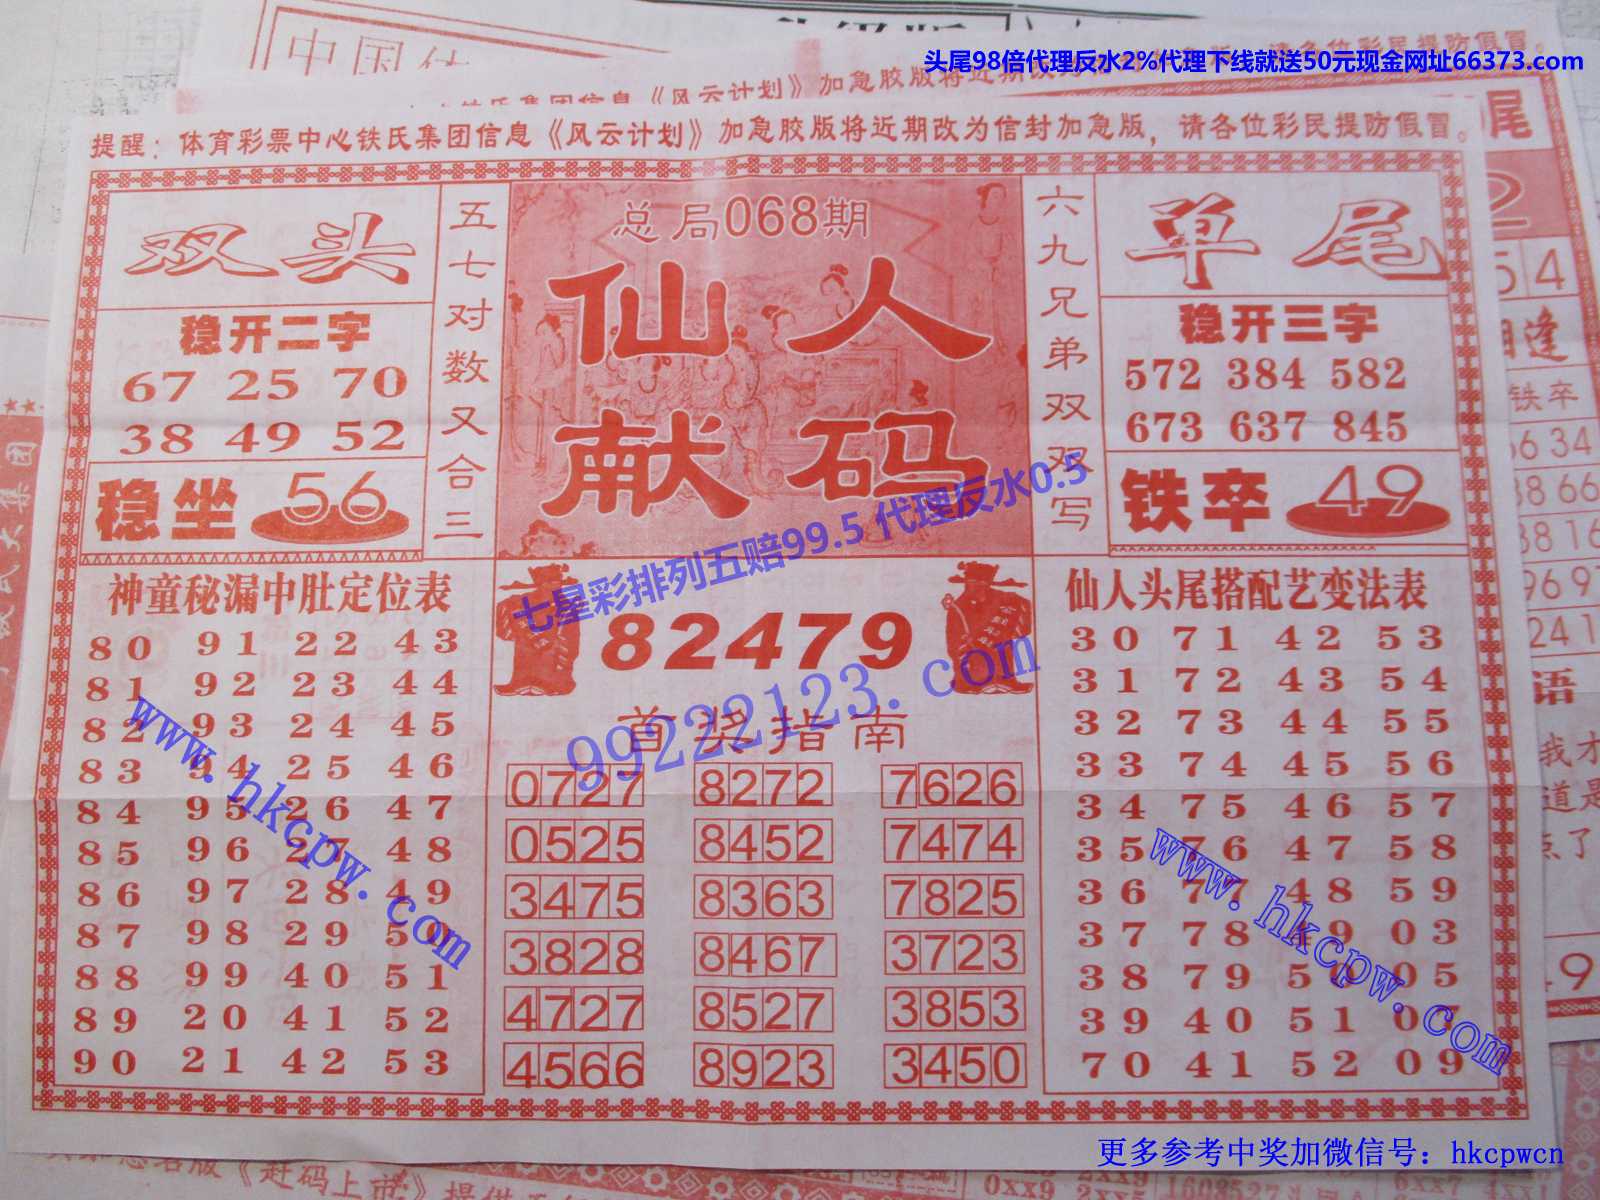 头尾98倍代理反水2%代理下线就送50元现金网址66373.com
提醒：体育彩票中心铁氏集团信息《风云计划》加急胶版将近期改为信封加急版，请各位彩民提防假冒。
双头
稳开二字
67 25 70
38 49 52
稳坐 56
五七对数又合三
总局068期
仙人
献码
六九兄弟双双写
单尾
稳开三字
572 384 582
673 637 845
铁卒 49
七星彩排列五赔99.5 代理反水0.5
神童秘漏中肚定位表
80 91 22 43
81 92 23 44
82 93 24 45
83 94 25 46
84 95 26 47
85 96 27 48
86 97 28 49
87 98 29 50
88 99 40 51
89 20 41 52
90 21 42 53
82479
99222123.com
首奖指南
0727 8272 7626
0525 8452 7474
3475 8363 7825
3828 8467 3723
4727 8527 3853
4566 8923 3450
仙人头尾搭配艺变法表
30 71 42 53
31 72 43 54
32 73 44 55
33 74 45 56
34 75 46 57
35 76 47 58
36 77 48 59
37 78 49 03
38 79 50 05
39 40 51 07
70 41 52 09
www.hkcpw.com
www.hkcpw.com
更多参考中奖加微信号：hkcpwcn